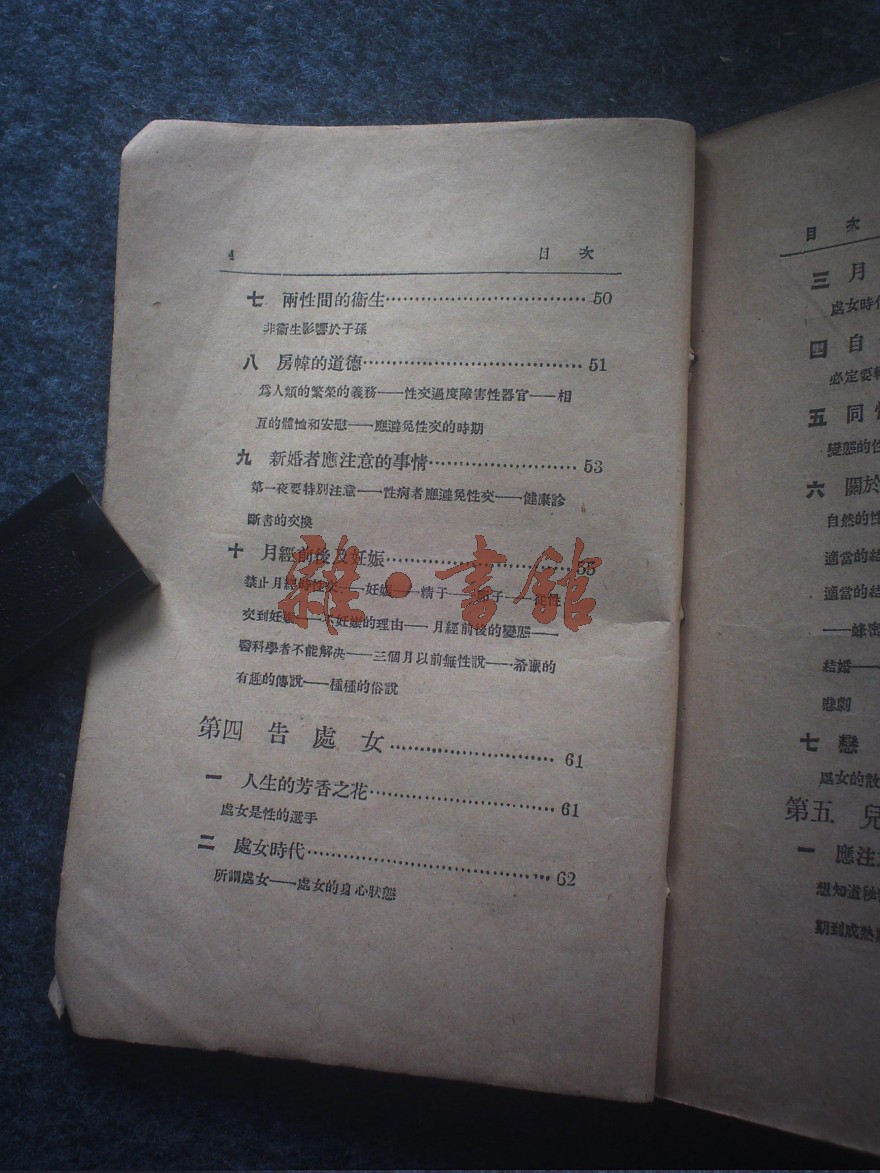 4 目次
七 兩性間的衞生 50
非衞生影響於子孫
八 房幃的道德 51
爲人類的繁榮的義務——性交過度障害性器官——相
互的體恤和安慰——應避免性交的時期
九 新婚者應注意的事情 53
第一夜要特別注意——性病者應避免性交——健康診
斷書的交換
十 月經前後及妊娠 55
禁止月經時性交——妊娠——精子——卵子——從性
交到妊娠——不妊娠的理由——月經前後的變態——
醫科學者不能解決——三個月以前無性說——希臘的
有趣的傳說——種種的俗說
第四 告處女 61
一 人生的芳香之花 61
處女是性的選手
二 處女時代 62
所謂處女——處女的身心狀態
雜·書館
目次
三 月
處女時代
四 自
必定要
五 同
變態的性
六 關於
自然的性
適當的結
適當的結
——蜂密
結婚——
悲劇
七 戀
處女的
第五 兒
一 應注
想知道祕
期到成熟